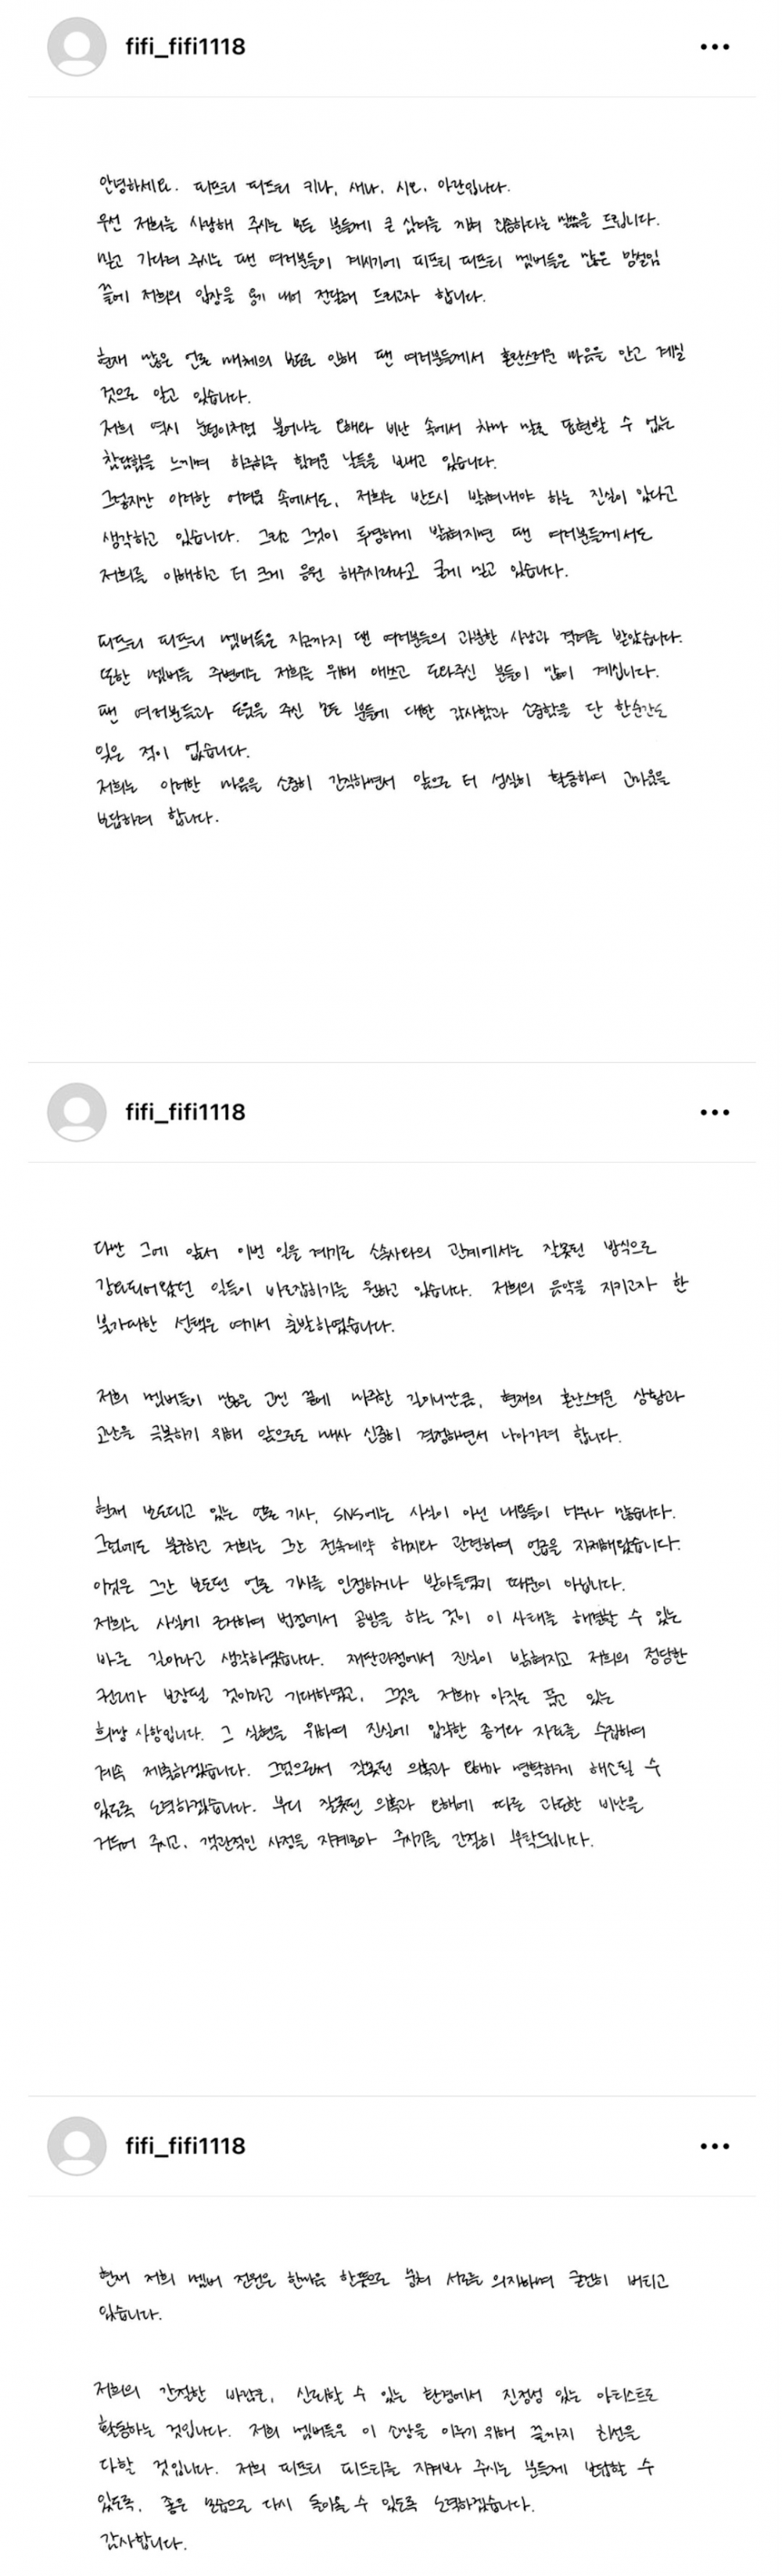 fifi_fifi1118
안녕하세요. 피프티 피프티 키나, 새나, 시오, 아란입니다.
우선 저희를 사랑해 주시는 모든 분들께 큰 심려를 끼쳐 죄송하다는 말씀을 드립니다.
믿고 기다려 주시는 팬 여러분들이 계시기에 피프티 피프티 멤버들은 많은 망설임
끝에 저희의 입장을 용기 내어 전달해 드리고자 합니다.
현재 많은 언론 매체의 보도로 인해 팬 여러분들께서 혼란스러운 마음을 안고 계실
것으로 알고 있습니다.
저희 역시 눈덩이처럼 불어나는 오해와 비난 속에서 차마 말로 표현할 수 없는
참담함을 느끼며 하루하루 힘겨운 날들을 보내고 있습니다.
그렇지만 이러한 어려움 속에서도, 저희는 반드시 밝혀내야 하는 진실이 있다고
생각하고 있습니다. 그리고 그것이 투명하게 밝혀지면 팬 여러분들께서도
저희를 이해하고 더 크게 응원 해주시리라고 굳게 믿고 있습니다.
피프티 피프티 멤버들은 지금까지 팬 여러분들의 과분한 사랑과 격려를 받았습니다.
또한 멤버들 주변에는 저희를 위해 애쓰고 도와주신 분들이 많이 계십니다.
팬 여러분들과 도움을 주신 모든 분들에 대한 감사함과 소중함을 단 한순간도
잊은 적이 없습니다.
저희는 이러한 마음을 소중히 간직하면서 앞으로 더 성실히 활동하며 고마움을
보답하려 합니다.
fifi_fifi1118
다만 그에 앞서 이번 일을 계기로 소속사와의 관계에서는 잘못된 방식으로
강요되어왔던 일들이 바로잡히기를 원하고 있습니다. 저희의 음악을 지키고자 한
불가피한 선택은 여기서 출발하였습니다.
저희 멤버들이 많은 고민 끝에 마주한 길이니만큼, 현재의 혼란스러운 상황과
고난을 극복하기 위해 앞으로도 매사 신중히 결정하면서 나아가려 합니다.
현재 보도되고 있는 언론 기사, SNS에는 사실이 아닌 내용들이 너무나 많습니다.
그럼에도 불구하고 저희는 그간 전속계약 해지와 관련하여 언급을 자제해왔습니다.
이것은 그간 보도된 언론 기사를 인정하거나 받아들였기 때문이 아닙니다.
저희는 사실에 근거하여 법정에서 공방을 하는 것이 이 사태를 해결할 수 있는
바른 길이라고 생각하였습니다. 재판과정에서 진실이 밝혀지고 저희의 정당한
권리가 보장될 것이라고 기대하였고, 그것은 저희가 아직도 품고 있는
희망 사항입니다. 그 실현을 위하여 진실에 입각한 증거와 자료를 수집하여
계속 제출하겠습니다. 그럼으로써 잘못된 의혹과 오해가 명확하게 해소될 수
있도록 노력하겠습니다. 부디 잘못된 의혹과 오해에 따른 과도한 비난을
거두어 주시고, 객관적인 사정을 지켜보아 주시기를 간절히 부탁드립니다.
fifi_fifi1118
현재 저희 멤버 전원은 한마음 한뜻으로 뭉쳐 서로를 의지하며 굳건히 버티고
있습니다.
저희의 간절한 바람은, 신뢰할 수 있는 환경에서 진정성 있는 아티스트로
활동하는 것입니다. 저희 멤버들은 이 소망을 이루기 위해 끝까지 최선을
다할 것입니다. 저희 피프티 피프티를 지켜봐 주시는 분들께 보답할 수
있도록, 좋은 모습으로 다시 돌아올 수 있도록 노력하겠습니다.
감사합니다.